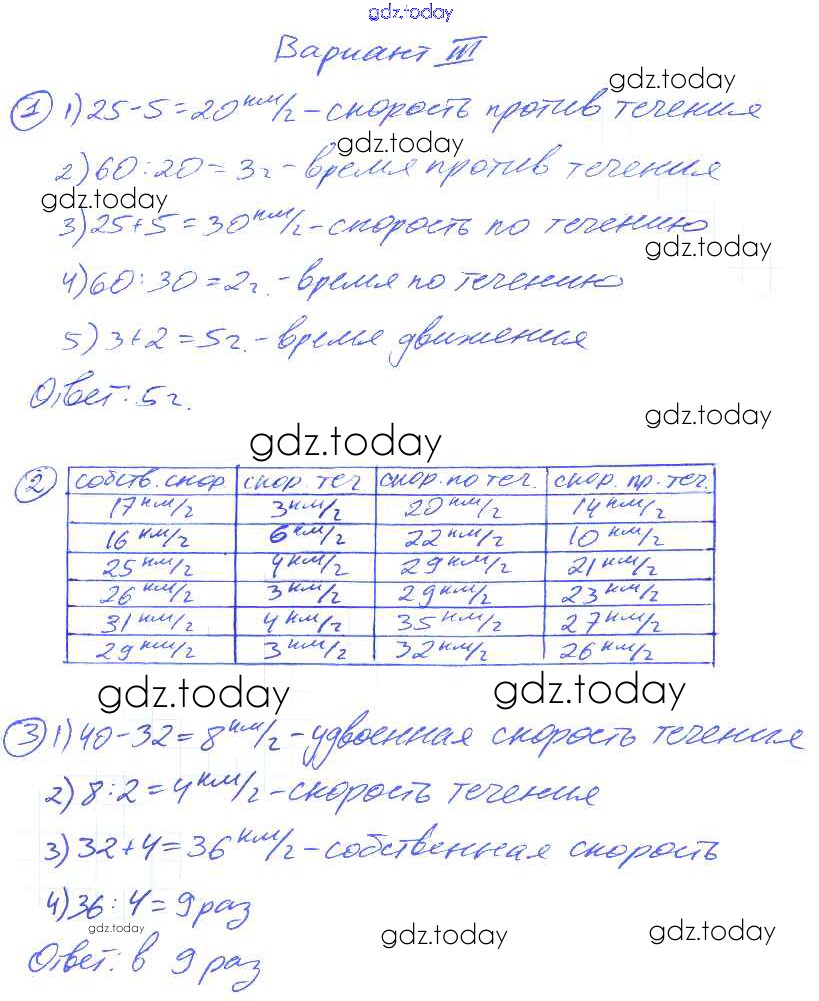 gdz.today
Вариант III
gdz.today
① 1) 25-5=20 км/г - скорость против течения
gdz.today
2) 60:20=3г - время против течения
gdz.today
3) 25+5=30 км/г - скорость по течению
gdz.today
4) 60:30=2г. - время по течению
5) 3+2=5г. - время движения
Ответ: 5г.
gdz.today
gdz.today
② собств. скор. скор. теч скор. по теч. скор. пр. теч.
17 км/г 3 км/г 20 км/г 14 км/г
16 км/г 6 км/г 22 км/г 10 км/г
25 км/г 4 км/г 29 км/г 21 км/г
26 км/г 3 км/г 29 км/г 23 км/г
31 км/г 4 км/г 35 км/г 27 км/г
29 км/г 3 км/г 32 км/г 26 км/г
gdz.today gdz.today
③ 1) 40-32=8 км/г - удвоенная скорость течения
2) 8:2=4 км/г - скорость течения
3) 32+4=36 км/г - собственная скорость
4) 36:4=9 раз
gdz.today gdz.today gdz.today
Ответ: в 9 раз